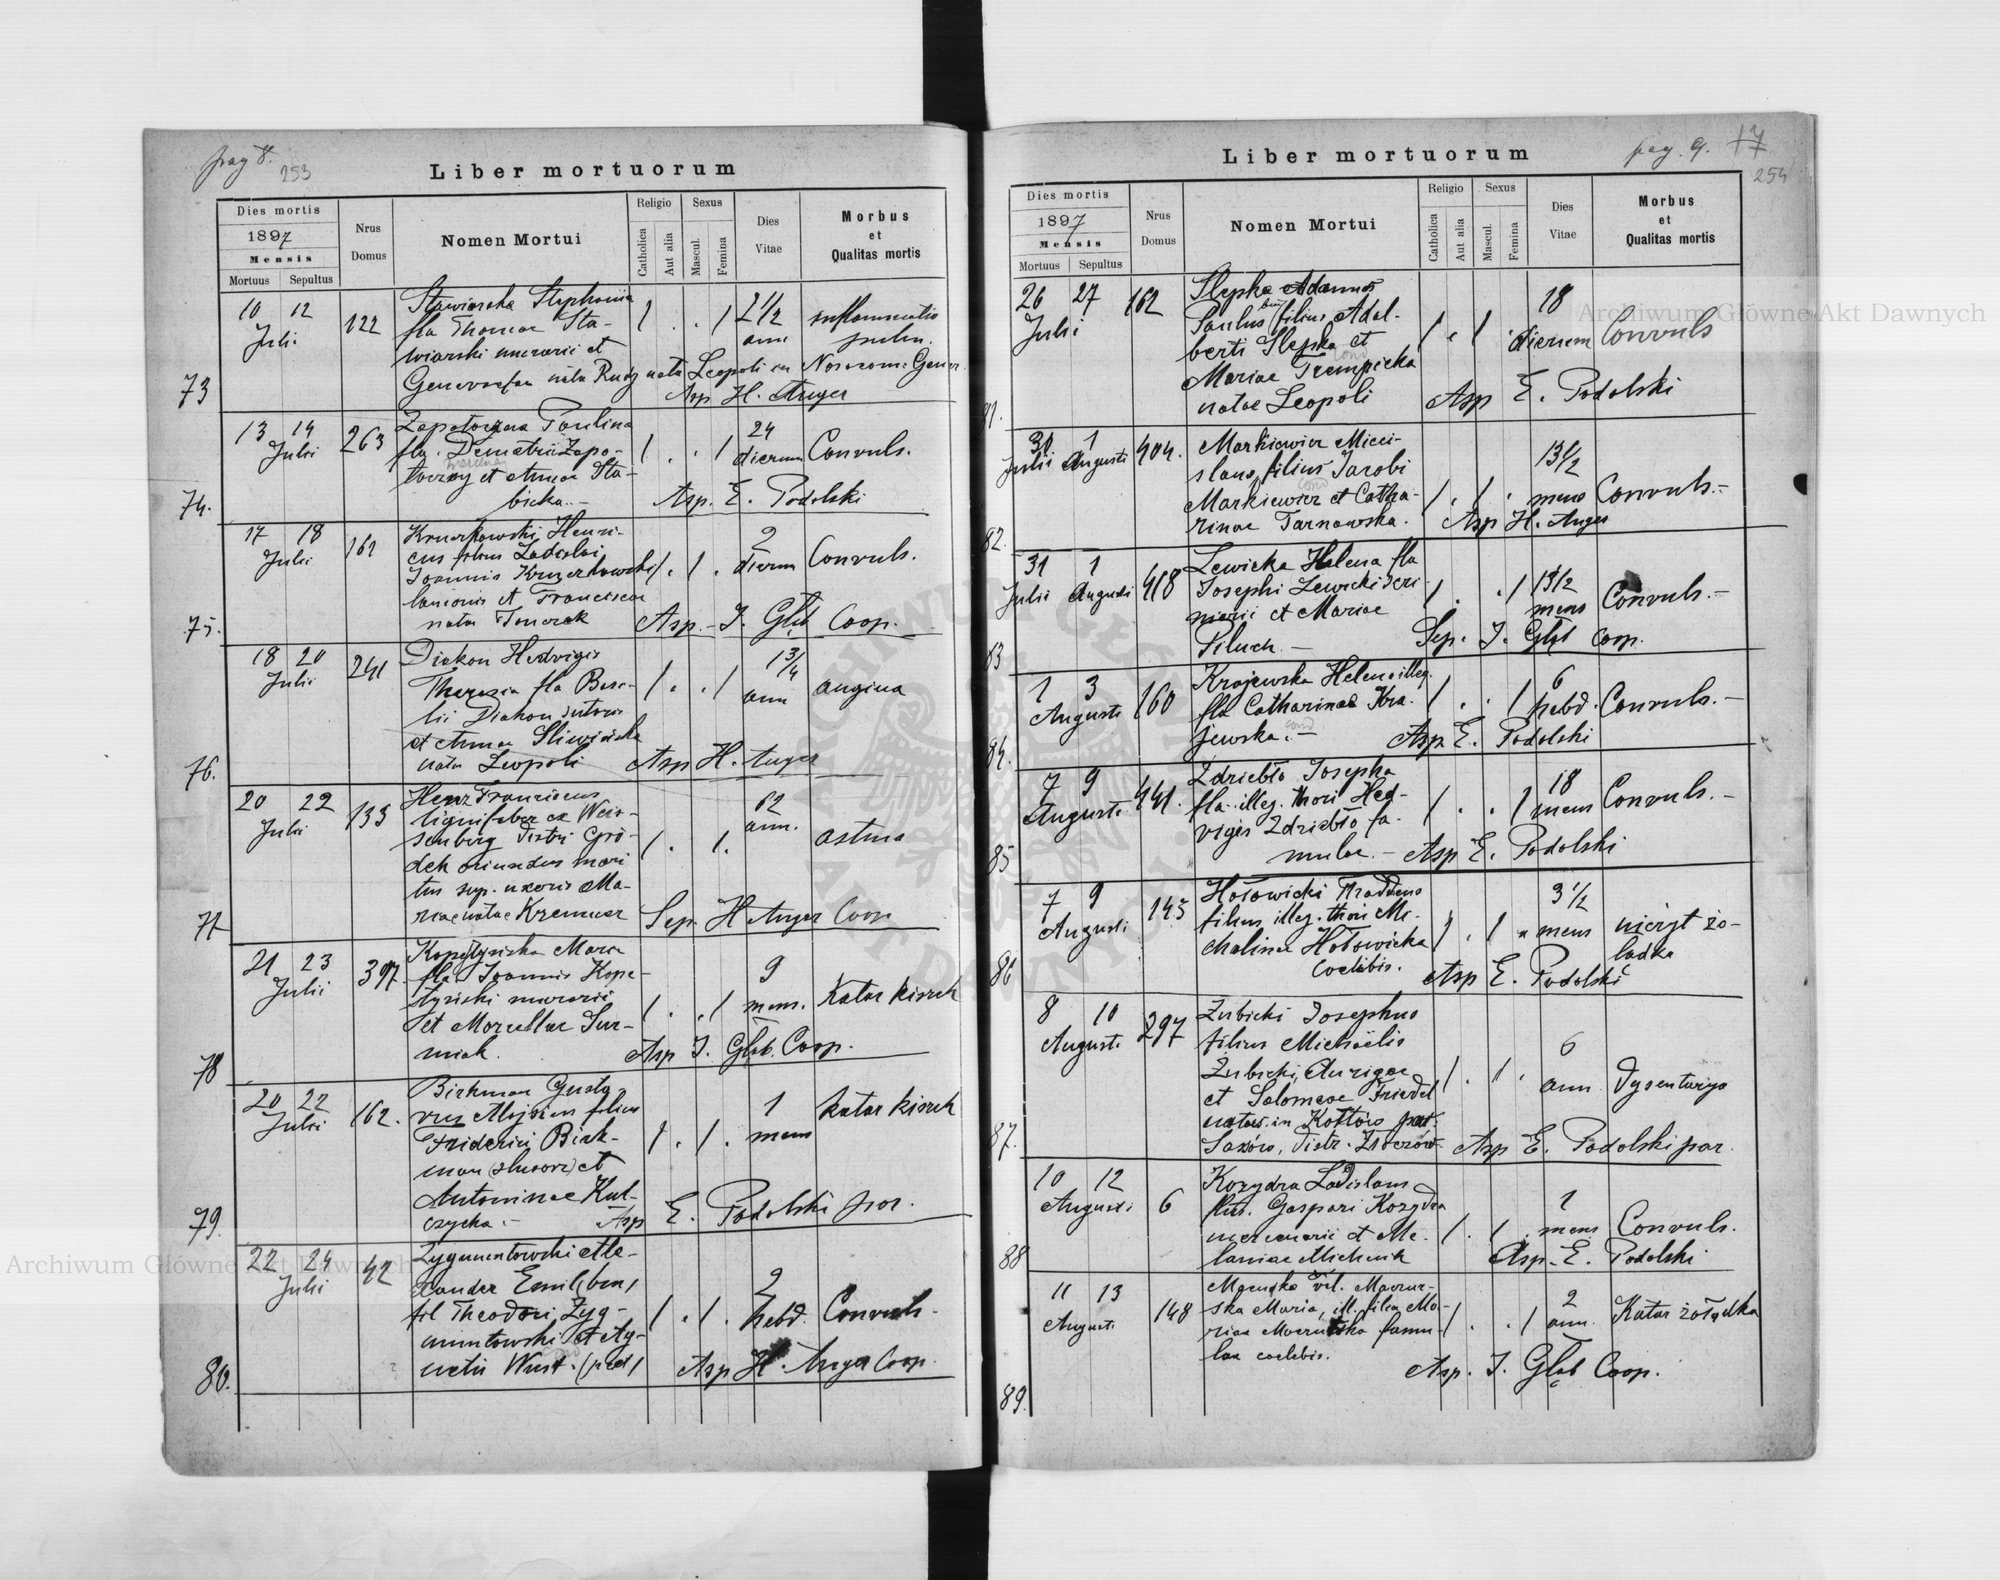 pag 8.
253
Liber mortuorum
Dies mortis
1897
Mensis
Mortuus Sepultus
Nrus Domus
Nomen Mortui
Religio
Catholica
Aut alia
Sexus
Mascul.
Femina
Dies Vitae
Morbus et Qualitas mortis
73
10 12
Julii
122
Stawiarska Stephania
fla Thomae Sta-
wiarski murarii et
Genovefae nata Leopoli in Nosocom. Gener.
2 1/2
ann
inflammatio
pulm.
Asp H. Auger
74.
13 14
Julii
263
Zapotoczna Paulina
fla. Demetrii Zapo-
toczny et Annae Sta-
bicka.-
24
dierum
Convuls.
Asp. E. Podolski
75.
17 18
Julii
161
Henri-
cus filius Ladislai
Joannis
lanionis et Franciscae
natae
2
dierum
Convuls.
Asp.- J. Głąb Coop.
76.
18 20
Julii
241
Diakon Hedvigis
Theresia fla Basi-
lii Diakon sutoris
et Annae
nata Leopoli
1 3/4
ann
angina
Asp H. Auger
77
20 22
Julii
133
Henz Franciscus
lignifaber ex Weis-
senberg Distri Gró-
dek oriundus mari
tus sup. uxoris Ma-
riae natae Kremer
62
ann.
astma
Sep H Auger Coop
78
21 23
Julii
397.
Kopetyńska Maria
fla Joannis Kope-
tyński murarii
et Marcellae Sur-
miak.
9
mens.
Katar kiszek
Asp J. Głąb. Coop.
79.
20 22
Julii
162.
Birkman Gusta
vus Aloysius filius
Friderici Birk-
man (slusarz) et
Antoninae Kul-
czycka.-
1
mens
katar kiszek
Asp E. Podolski par.
80.
22 24
Julii
42
Zygmuntowski Ale-
xander Emil (bin)
fil Theodori Zyg-
muntowski et Ag-
netis Wust.
2
hebd.
Convuls.
Asp H. Auger Coop.
pag. 9.
17
254
Liber mortuorum
Dies mortis
1897
Mensis
Mortuus Sepultus
Nrus Domus
Nomen Mortui
Religio
Catholica
Aut alia
Sexus
Mascul.
Femina
Dies Vitae
Morbus et Qualitas mortis
81.
26 27
Julii
162
Slepka Adamus
Paulus (bin) filius Adal-
berti Slepka et
Mariae Trempicka
natae Leopoli
18
dierum
Convuls
Asp E. Podolski
82.
Julii 1 Augusti
404.
Markiewicz Mieci-
slaus, filius Jacobi
Markiewicz et Catha-
rinae Tarnawska.
13 1/2
mens
Convuls.-
Asp H. Auger
83
31 1
Julii Augusti
418
Lewicka Helena fla
Josephi Lewicki scri-
niarii et Mariae
Piluch.-
13 1/2
mens
Convuls.-
Sep. J. Głąb Coop.
84.
1 3
Augusti
160
Krajewska Helena illeg.
fla Catharinae Kra-
jewska.-
6
hebd.
Convuls.-
Asp. E. Podolski
85
7 9
Augusti
441.
Zdziebło Josepha
fla. illeg. thori Hed-
vigis Zdziebło fa-
mulae.-
18
mens
Convuls.-
Asp E. Podolski
86
7 9
Augusti
145
Hołowicki Thaddeus
filius illeg. thori Mi-
chalinae Hołowicka
coelibis.
3 1/2
mens
nieżyt żo-
ladka
Asp E. Podolski
87.
8 10
Augusti
297
Żubicki Josephus
filius Michaelis
Żubicki, Aurigae
et Salomeae Friedel
natus in Kottów
6
ann
Dysenterya
Asp E. Podolski par.
88
10 12
Augusti
6
Kozydra Ladislaus
flius. Gaspari Kozydra
mercenarii et Me-
laniae Michnik
1
mens
Convuls.
Asp.- E. Podolski
89.
11 13
Augusti
148
vel. Mazur-
ska Maria, ill. filia Ma-
riae famu-
lae coelibis.
2
ann.
Katar żołądka
Asp. J. Głąb Coop.
Archiwum Główne Akt Dawnych
Archiwum Główne Akt Dawnych